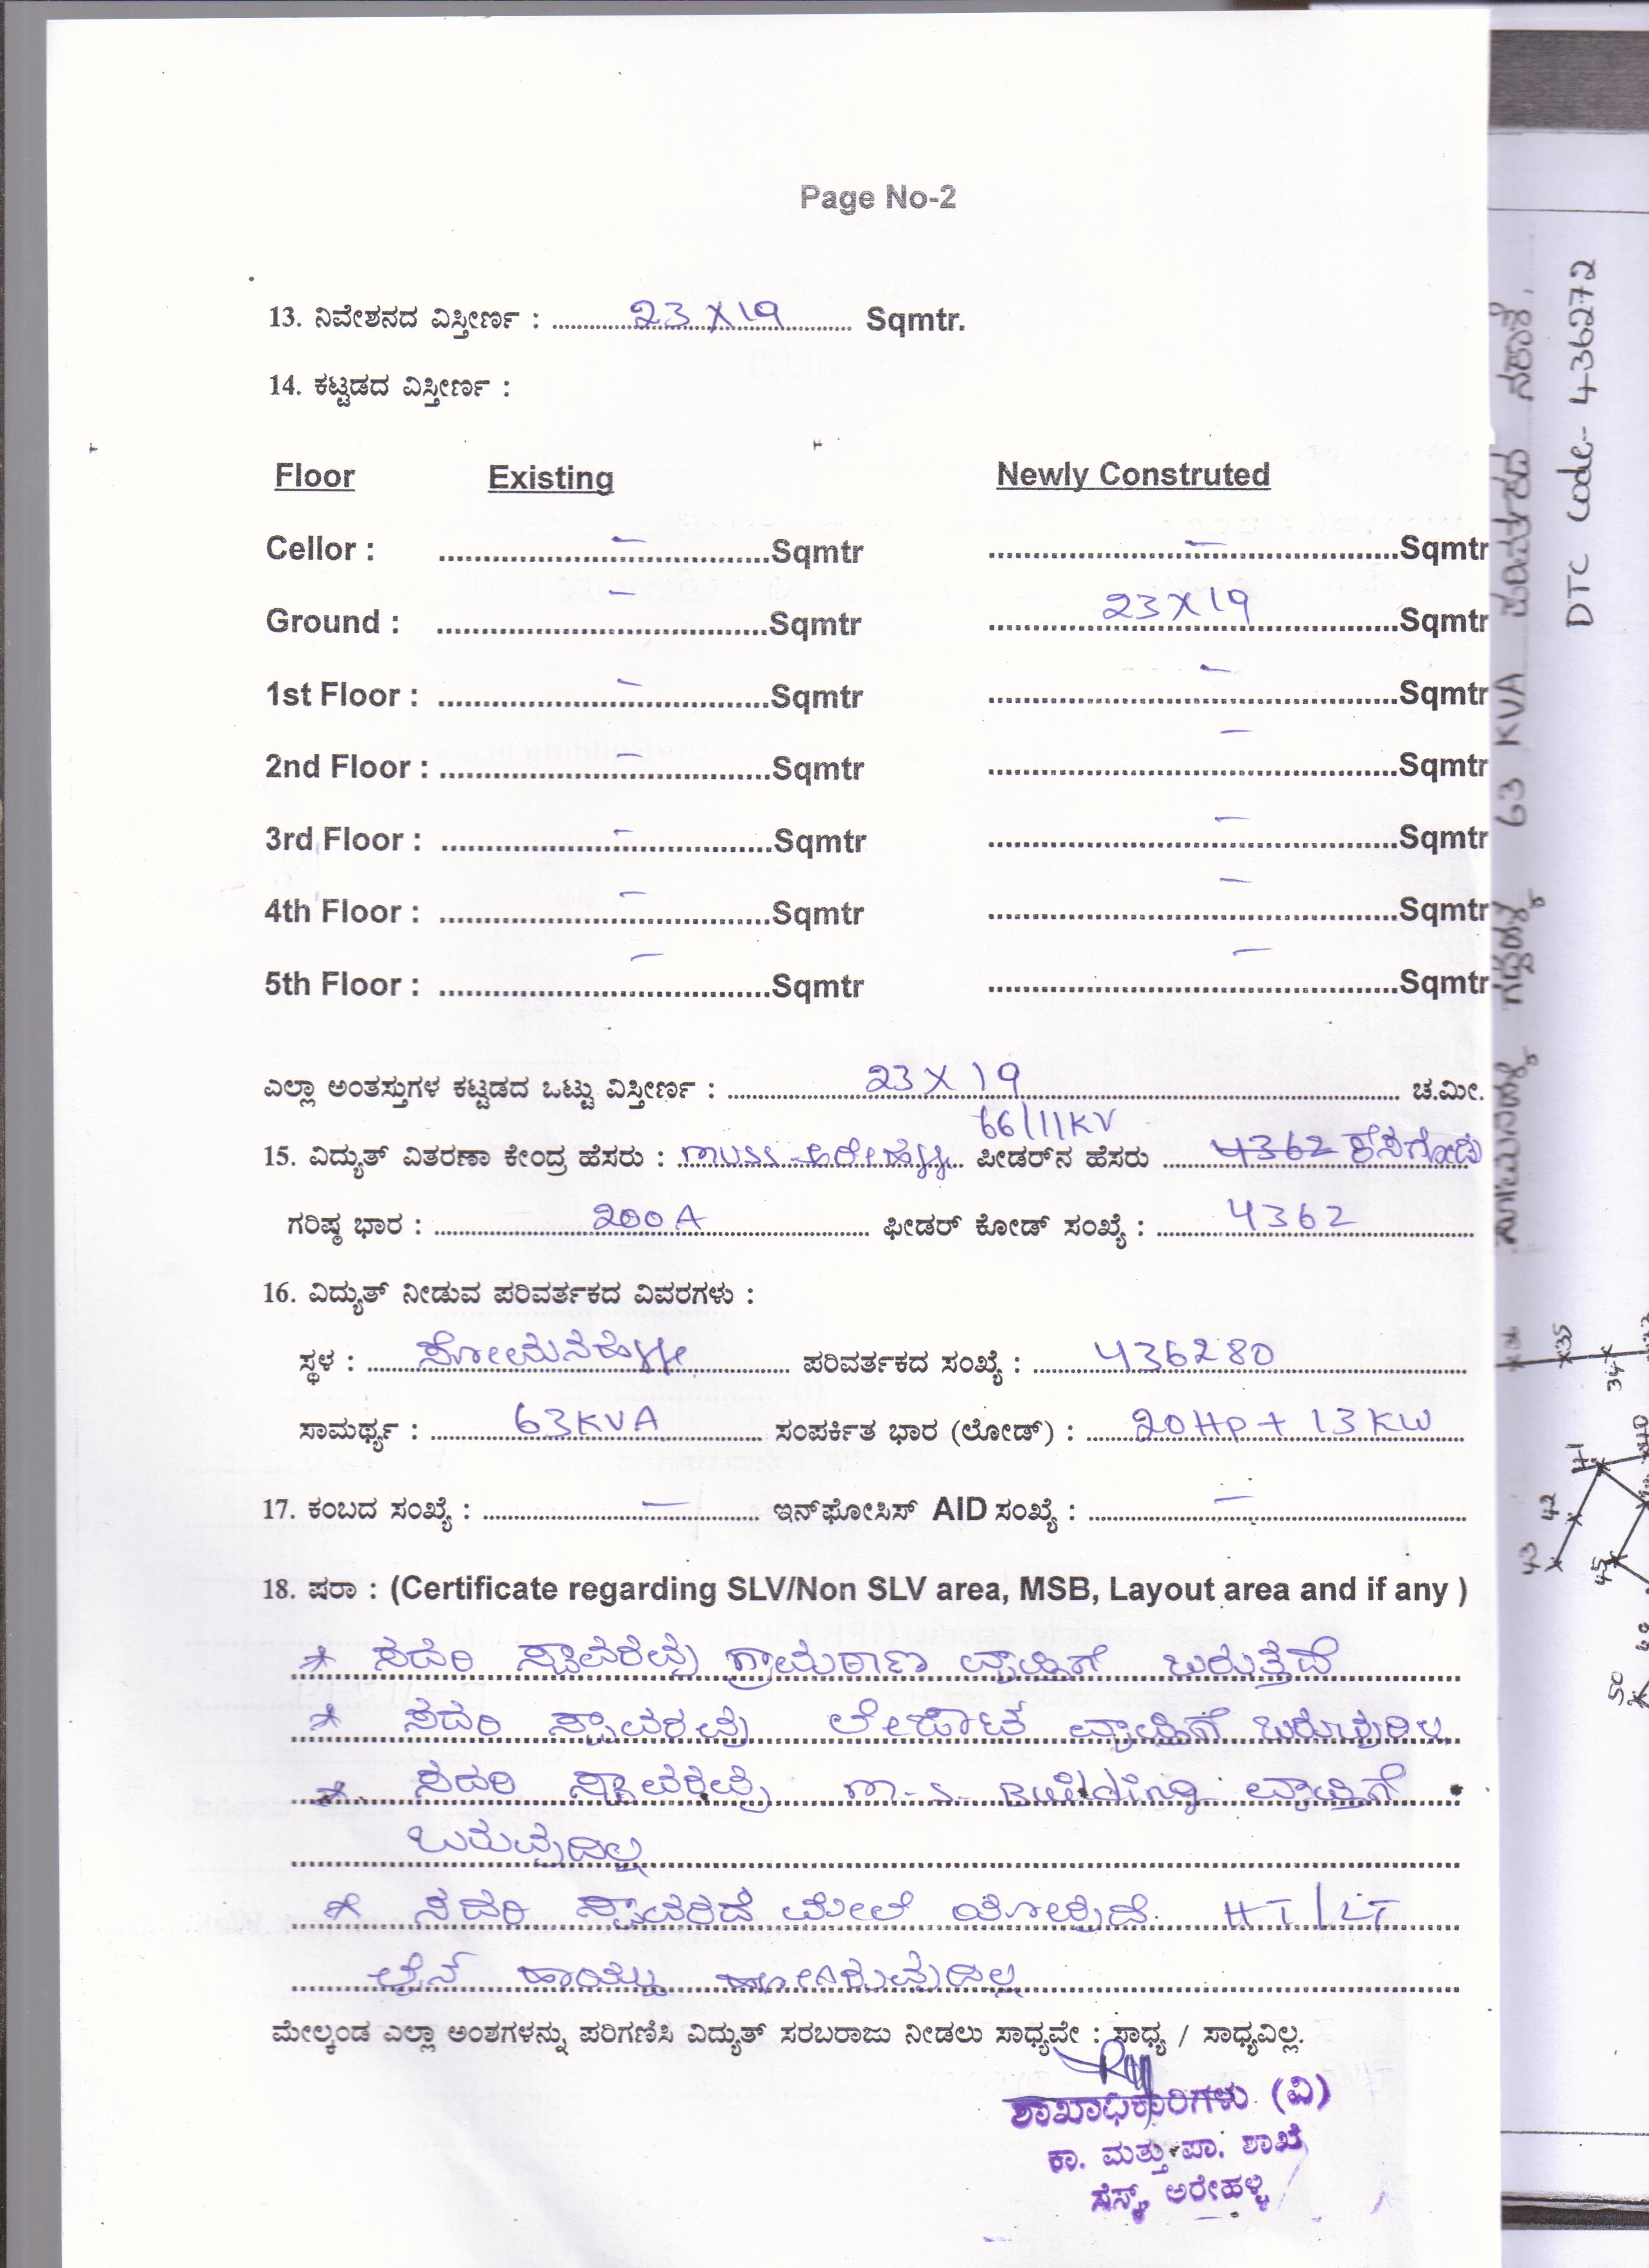 Page No-2
13. ನಿವೇಶನದ ವಿಸ್ತೀರ್ಣ : 23 X 19 Sqmtr.
14. ಕಟ್ಟಡದ ವಿಸ್ತೀರ್ಣ :
Floor Existing Newly Construted
Cellor : – Sqmtr – Sqmtr
Ground : – Sqmtr 23 X 19 Sqmtr
1st Floor : – Sqmtr – Sqmtr
2nd Floor : – Sqmtr – Sqmtr
3rd Floor : – Sqmtr – Sqmtr
4th Floor : – Sqmtr – Sqmtr
5th Floor : – Sqmtr – Sqmtr
ಎಲ್ಲಾ ಅಂತಸ್ತುಗಳ ಕಟ್ಟಡದ ಒಟ್ಟು ವಿಸ್ತೀರ್ಣ : 23 X 19 ಚ.ಮೀ.
66/11KV
15. ವಿದ್ಯುತ್ ವಿತರಣಾ ಕೇಂದ್ರ ಹೆಸರು : MUSS ಅರೇಹಳ್ಳಿ ಪೀಡರ್‌ನ ಹೆಸರು 4362
ಗರಿಷ್ಠ ಭಾರ : 200A ಫೀಡರ್ ಕೋಡ್ ಸಂಖ್ಯೆ : 4362
16. ವಿದ್ಯುತ್ ನೀಡುವ ಪರಿವರ್ತಕದ ವಿವರಗಳು :
ಸ್ಥಳ : ಸೋಮನಹಳ್ಳಿ ಪರಿವರ್ತಕದ ಸಂಖ್ಯೆ : 436280
ಸಾಮರ್ಥ್ಯ : 63KVA ಸಂಪರ್ಕಿತ ಭಾರ (ಲೋಡ್) : 20HP + 13KW
17. ಕಂಬದ ಸಂಖ್ಯೆ : – ಇನ್‌ಫೋಸಿಸ್ AID ಸಂಖ್ಯೆ : –
18. ಷರಾ : (Certificate regarding SLV/Non SLV area, MSB, Layout area and if any )
* ಸದರಿ ಸ್ಥಾವರವು ಗ್ರಾಮಠಾಣ ವ್ಯಾಪ್ತಿಗೆ ಬರುತ್ತದೆ
* ಸದರಿ ಸ್ಥಾವರವು ಲೇಔಟ ವ್ಯಾಪ್ತಿಗೆ ಬರುವುದಿಲ್ಲ
* ಸದರಿ ಸ್ಥಾವರವು M.S. Building ವ್ಯಾಪ್ತಿಗೆ
ಬರುವುದಿಲ್ಲ
* ಸದರಿ ಸ್ಥಾವರದ ಮೇಲೆ HT/LT
ಲೈನ್ ಹಾಯ್ದು ಹೋಗಿರುವುದಿಲ್ಲ
ಮೇಲ್ಕಂಡ ಎಲ್ಲಾ ಅಂಶಗಳನ್ನು ಪರಿಗಣಿಸಿ ವಿದ್ಯುತ್ ಸರಬರಾಜು ನೀಡಲು ಸಾಧ್ಯವೇ : ಸಾಧ್ಯ / ಸಾಧ್ಯವಿಲ್ಲ.
ಶಾಖಾಧಿಕಾರಿಗಳು (ವಿ)
ಕಾ. ಮತ್ತು ಪಾ. ಶಾಖೆ
ಸೆಸ್ಕ್, ಅರೇಹಳ್ಳಿ
63 KVA ಪರಿವರ್ತಕದ ನಕಾಶೆ.
DTC Code- 436272
35
34
41
42
43
45
50